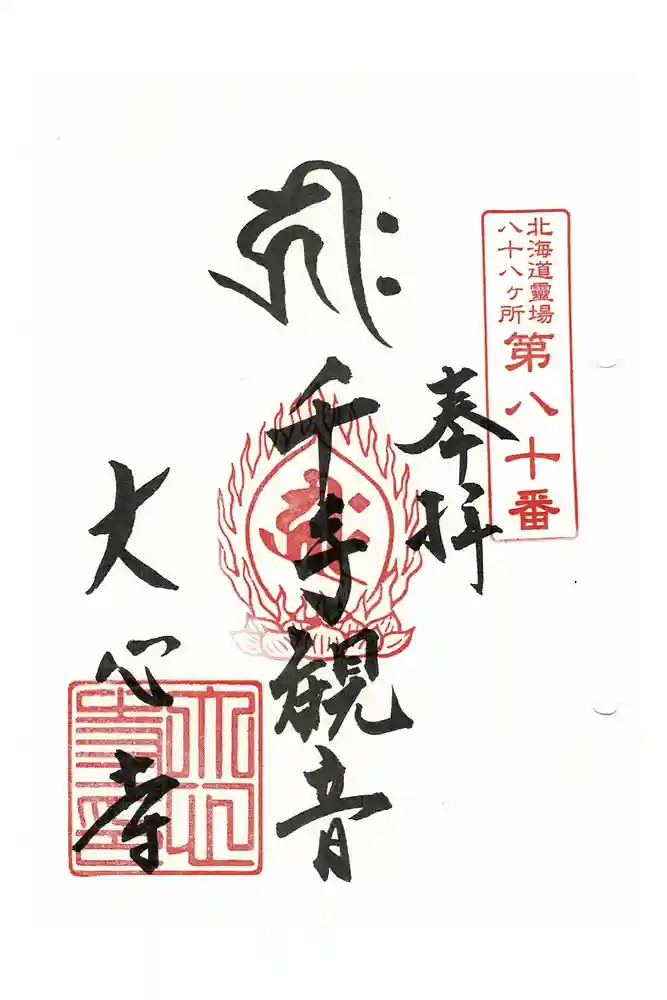 北海道靈場
八十八ヶ所
第八十番
奉拝
𑖮𑖿𑖨𑖱𑖾
千手観音
大心寺
大心寺印